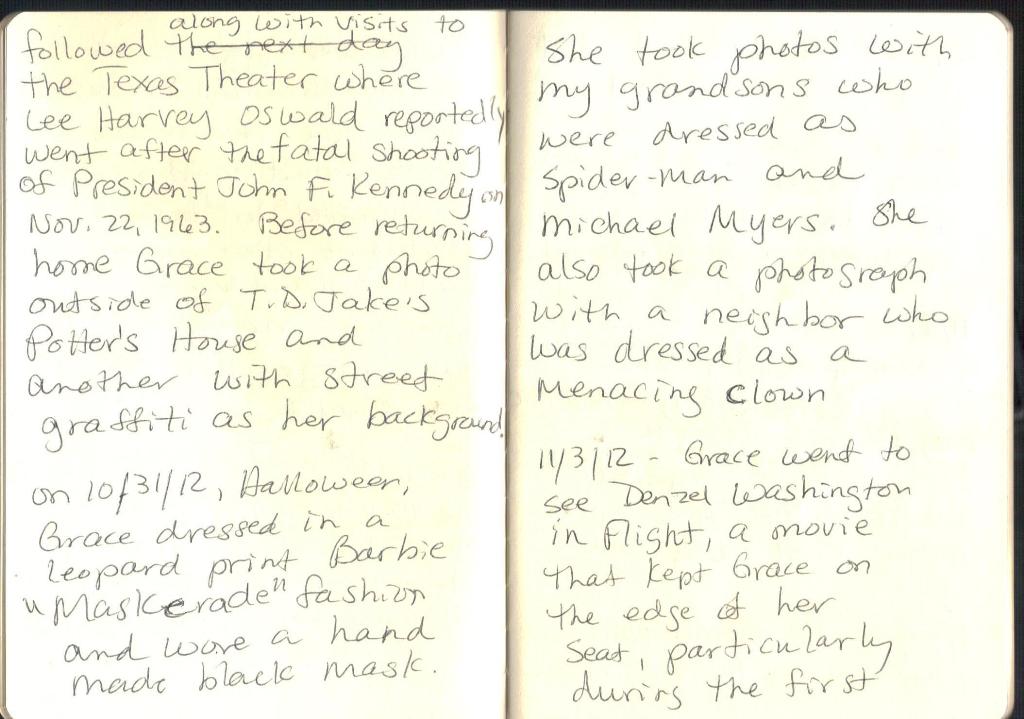 along with visits to
followed the next day
the Texas Theater where
Lee Harvey Oswald reportedly
went after the fatal shooting
of President John F. Kennedy on
Nov. 22, 1963. Before returning
home Grace took a photo
outside of T.D. Jake's
Potter's House and
another with street
graffiti as her background.
on 10/31/12, Halloween,
Grace dressed in a
leopard print Barbie
"Maskerade" fashion
and wore a hand
made black mask.
She took photos with
my grandsons who
were dressed as
Spider-man and
Michael Myers. She
also took a photograph
with a neighbor who
was dressed as a
Menacing Clown
11/3/12 - Grace went to
see Denzel Washington
in Flight, a movie
that kept Grace on
the edge of her
seat, particularly
during the first